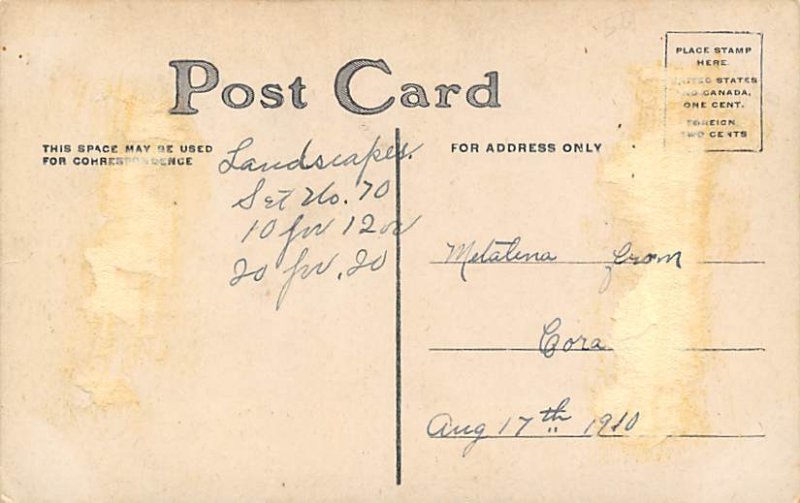 Post Card
PLACE STAMP
HERE
UNITED STATES
AND CANADA,
ONE CENT.
FOREIGN,
TWO CENTS
THIS SPACE MAY BE USED
FOR CORRESPONDENCE
FOR ADDRESS ONLY
Landscapes.
Set No. 70
10 for 12 or
20 for .20
Metalena from
Cora
Aug 17th 1910